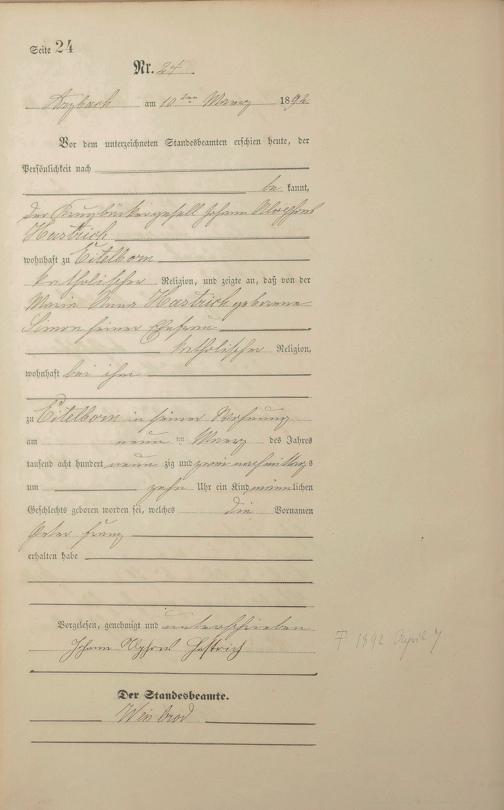 Seite 24
Nr. 24.
Arzbach am 10 ten Maerz 1892
Vor dem unterzeichneten Standesbeamten erschien heute, der
Persönlichkeit nach
be kannt,
der Krugbäckergesell Johann Alophons
Hastrich
wohnhaft zu Eitelborn
katholischer Religion, und zeigte an, daß von der
Maria Anna Hastrich geborene
Simon seiner Ehefrau
katholischer Religion,
wohnhaft bei ihm
zu Eitelborn in seiner Wohnung
am neun ten Maerz des Jahres
tausend acht hundert neun zig und zwei nachmittags
um zehn Uhr ein Kind männlichen
Geschlechts geboren worden sei, welches die Vornamen
Peter Franz
erhalten habe
Vorgelesen, genehmigt und unterschrieben
Johann Hastrich
Der Standesbeamte.
1892 April 7